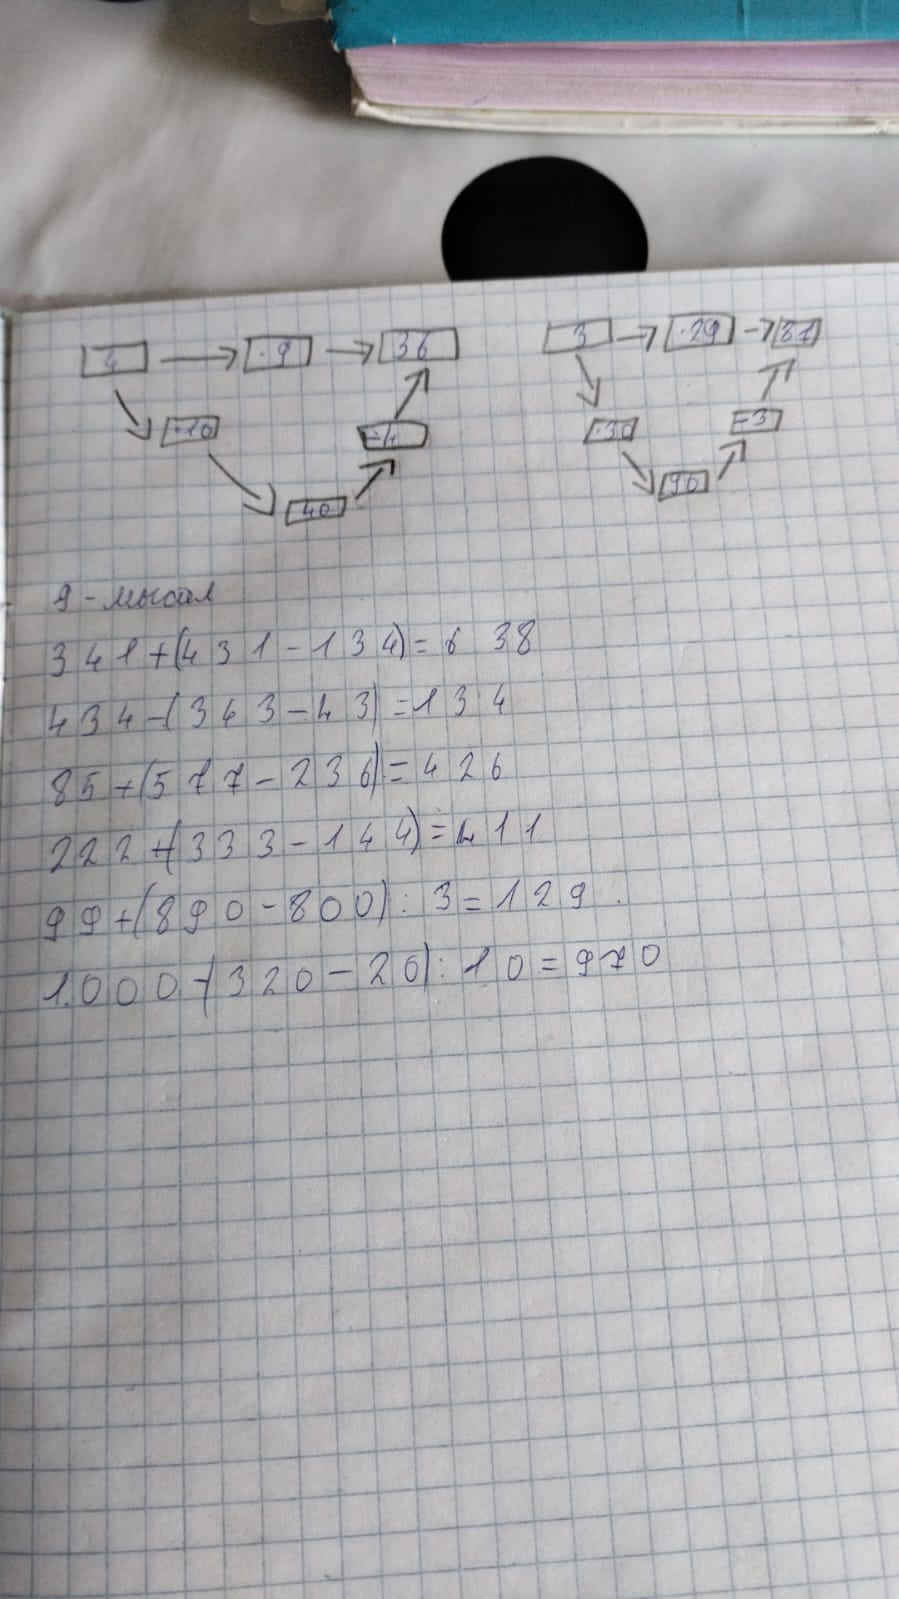 4 → ·9 → 36
·10 -4
40
3 → ·29 → 87
·30 -3
90
9-мысал
341+(431-134)=638
434-(343-43)=134
85+(577-236)=426
222+(333-144)=411
99+(890-800):3=129
1000-(320-20):10=970